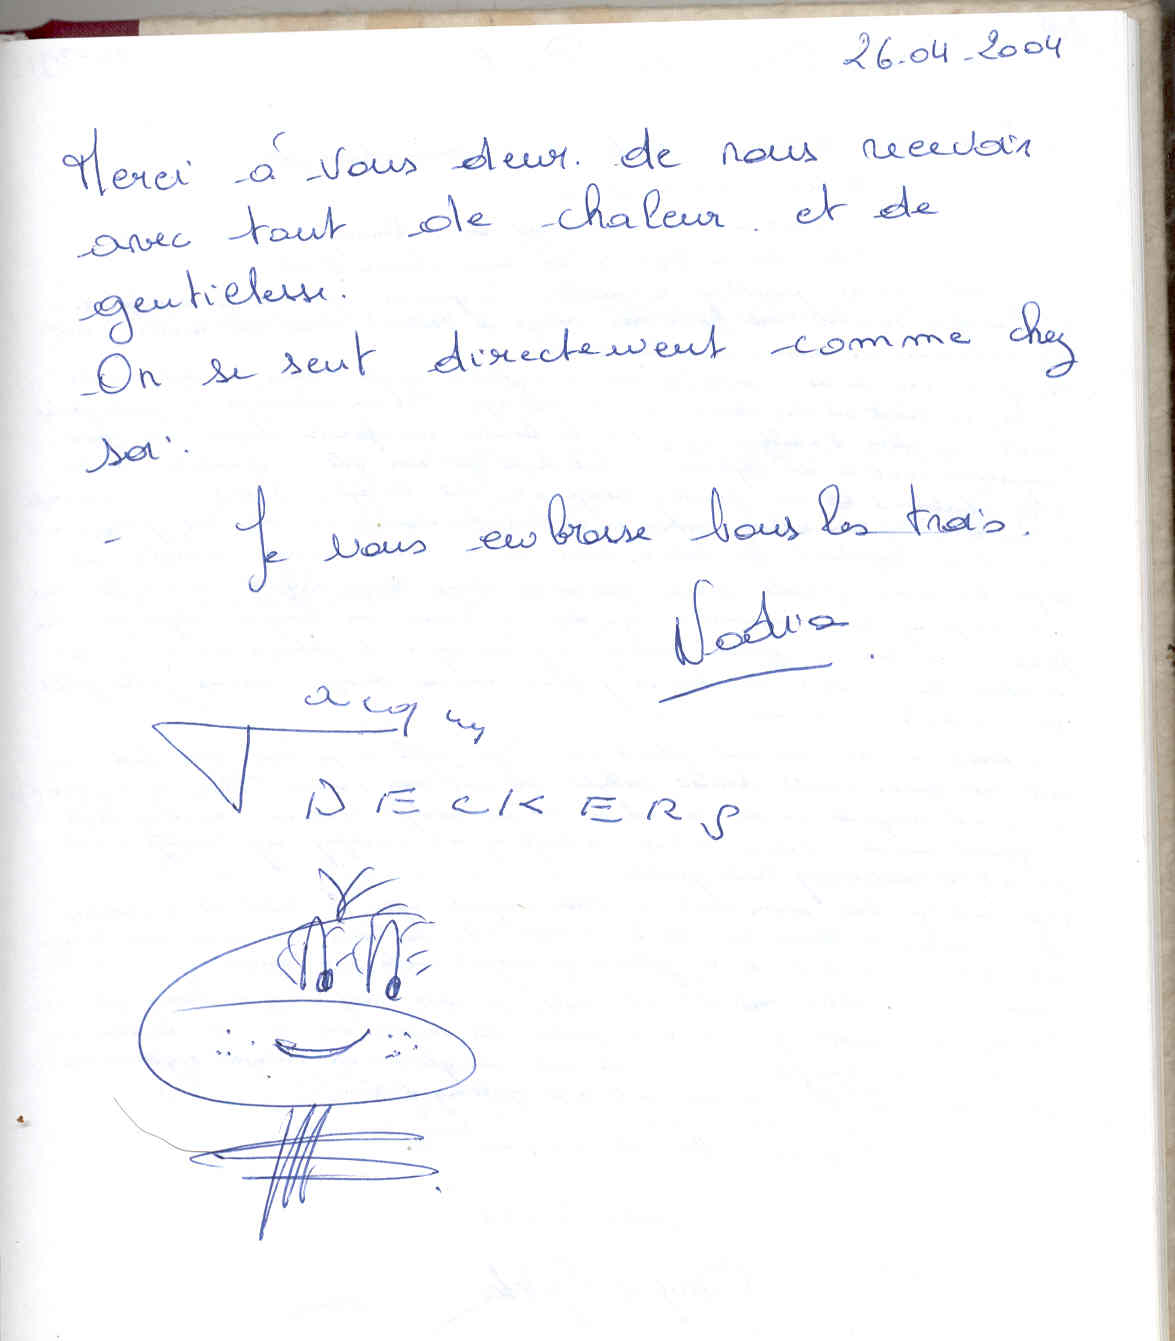 26.04.2004
Merci à vous deux. de nous recevoir
avec tant de chaleur et de
gentielesse.
On se sent directement comme chez
soi.
- Je vous embrasse tous les trois.
Nadia.
Jacques
DECKERS